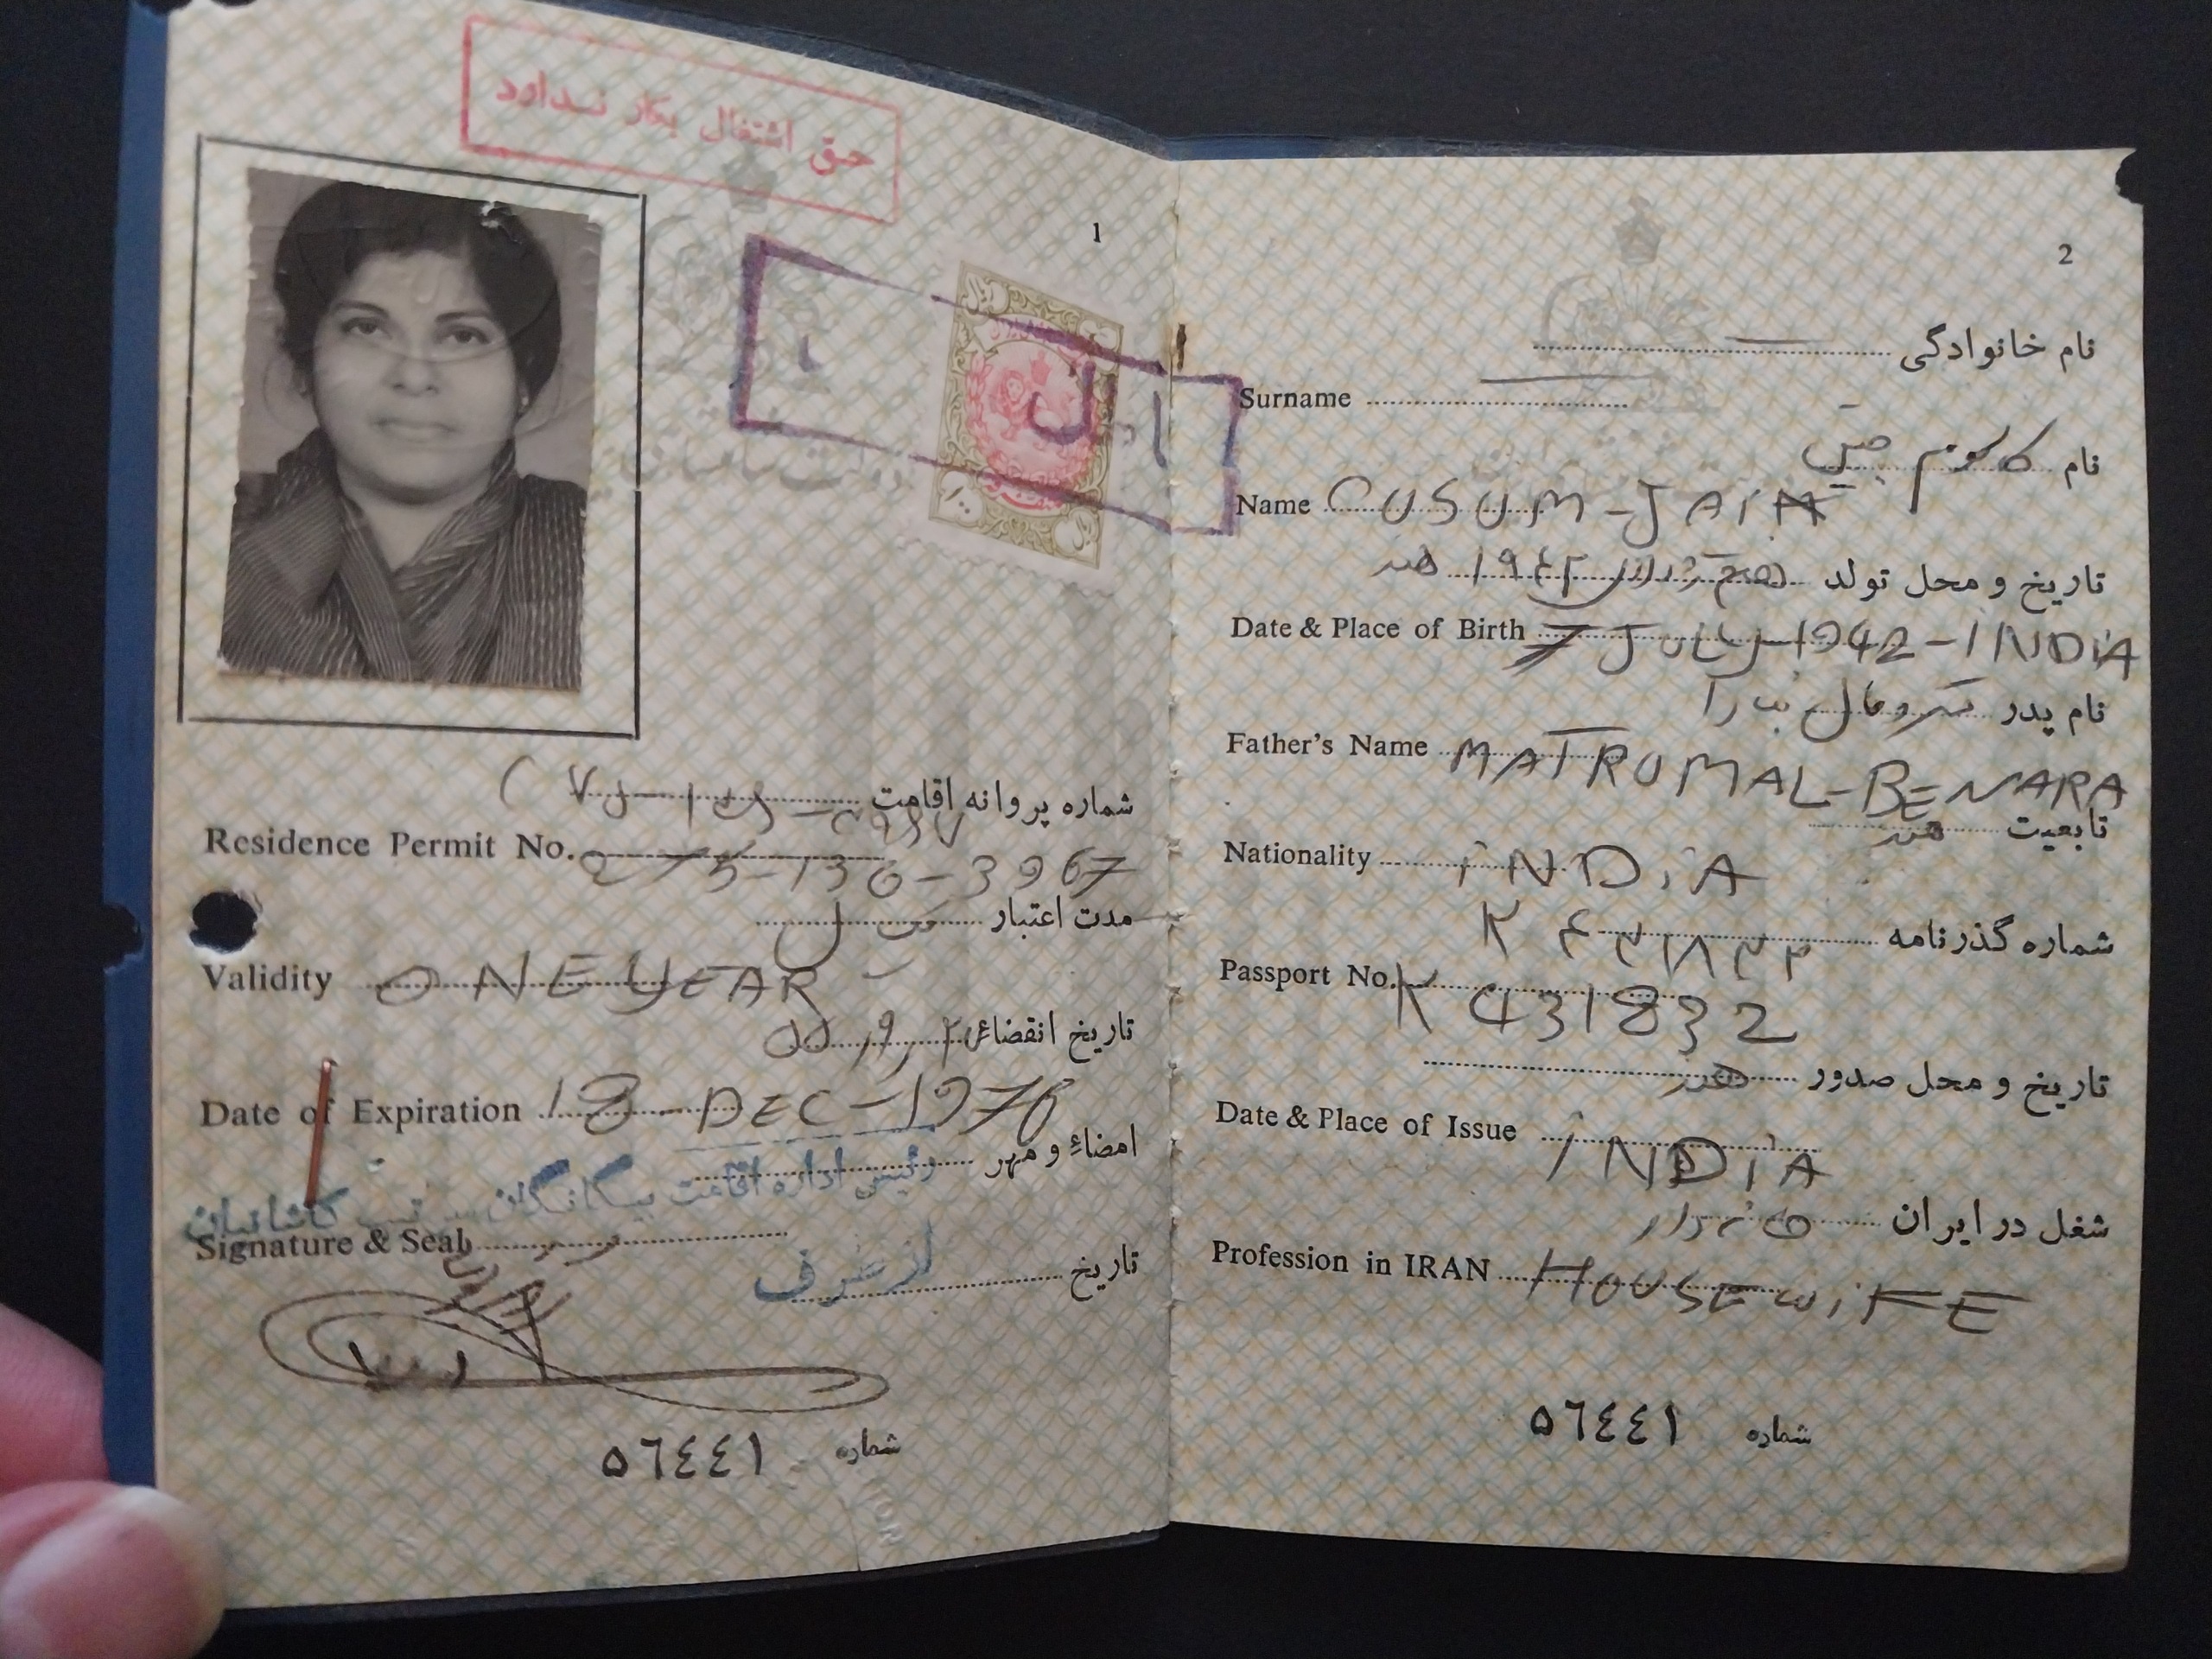 حق اشتغال بکار ندارد
1
شماره پروانه اقامت
Residence Permit No. 275-136-3967
مدت اعتبار
Validity ONE YEAR
تاریخ انقضاء
Date of Expiration 18-DEC-1976
امضاء و مهر
رئیس اداره اقامت بیگانگان سرتیپ کاشانیان
Signature & Seal
از طرف
تاریخ
شماره ٥٦٤٤١
2
نام خانوادگی
Surname
نام
Name CUSUM-JAIN
تاریخ و محل تولد ۱۹۴۲ هند
Date & Place of Birth 7 JULY-1942-INDIA
نام پدر
Father's Name MATROMAL-BENARA
تابعیت هند
Nationality INDiA
شماره گذرنامه K ۴۳۱۸۳۲
Passport No. K 431832
تاریخ و محل صدور هند
Date & Place of Issue iNDiA
شغل در ایران
Profession in IRAN HOUSEWiFE
شماره ٥٦٤٤١